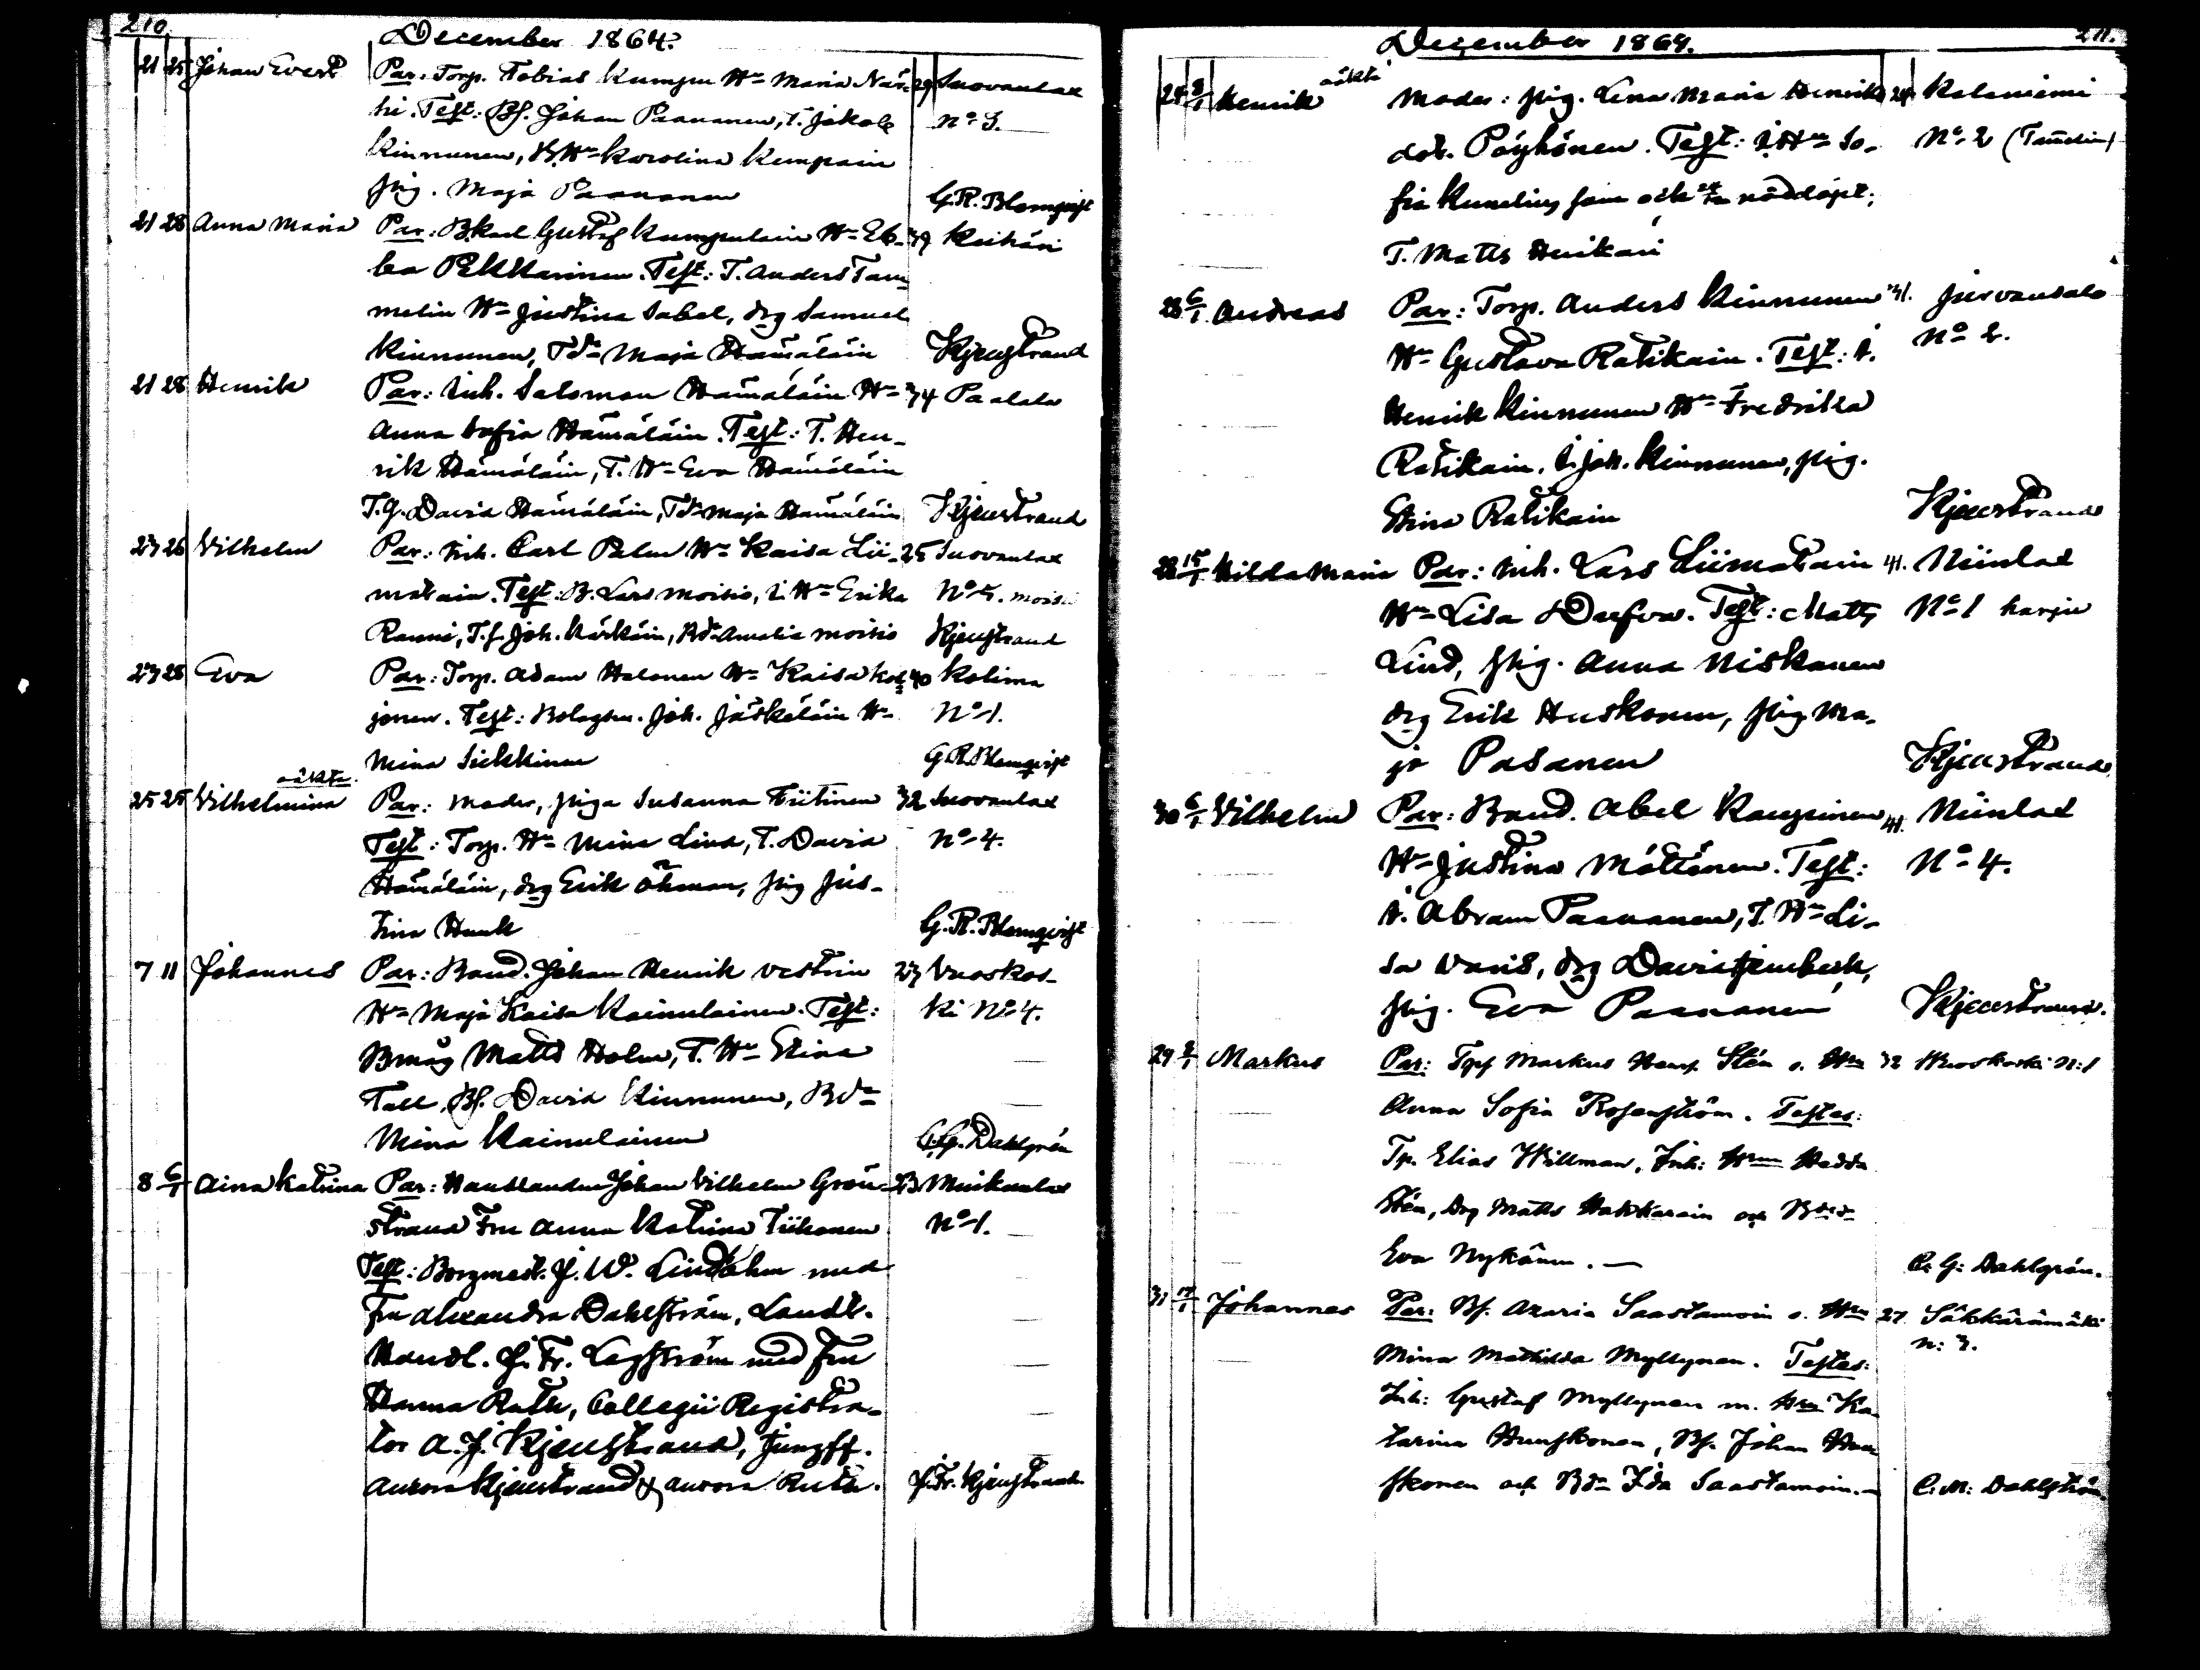 210.
December 1864.
21 25 Johan Evert Par: Torp. Tobias Kumpu Hu Maria När- 29 Suovanlax
hi. Test: Bf. Johan Paananen, I. Jakob No 3.
Kinnunen, B. Hu Karolina Kempain
pig. Maja Paananen G.R. Blomqvist
21 28 Anna Maria Par: B. Karl Gustaf Kumpulain Hu Eb- 39 Keihäri
ba Pekkarinen. Test: T. Anders Tam-
melin Hu Justina Sabel, drg Samuel
Kinnunen, Tdr Maja Hämäläin Kjenstrand
21 28 Henrik Par: Inh. Salomon Hämäläin Hu 34 Paalala
Anna Sofia Hämäläin. Test: T. Hen-
rik Hämäläin, T. Hu Eva Hämäläin
T.g. David Hämäläin, Tdr Maja Hämäläin Kjenstrand
23 26 Vilhelm Par: Inh. Carl Palm Hu Kaisa Lii- 25 Suovanlax
matain. Test: B. Lars Moisio, I. Hu Erika No 5. Moisi
Ranni, T.f. Joh. Kärkäin, Bdr Amalia Moisio Kjenstrand
23 28 Eva Par: Torp. Adam Halonen Hu Kaisa Kol- 40 Kolima
jonen. Test: Bolagsm. Joh. Jäskeläin Hu No 1.
Mina Sickkinen G.R. Blomqvist
oäkta
25 25 Vilhelmina Par: Moder, piga Susanna Tiitinen 32 Suovanlax
Test: Torp. Hu Mina Lind, T. David No 4.
Hämäläin, drg Erik Öhman, pig Jus-
tina Hauk G.R. Blomqvist
7 11 Johannes Par: Bond. Johan Henrik Vestrin 27 Vuoskos-
Hu Maja Kaisa Kainulainen. Test: ki No 4.
Bmåg Matts Holm, T. Hu Stina
Tall, Bf. David Kinnunen, Bdr
Mina Kainulainen C.G. Dahlgrén
8 6/1 Aina Katrina Par: Handlanden Johan Vilhelm Grön- 23 Muikunlax
strand Fru Anna Katrina Tiihonen No 1.
Test: Borgmest. J. W. Lindholm med
fru Alexandra Dahlström, Landt.
Handl. J. Fr. Lagström med fru
Hanna Ruth, Collegii Registra-
tor A. J. Kjenstrand, Jungff.
Aurora Kjenstrand & Aurora Ruth. J. Fr. Kjenstrand
211.
December 1864.
oäkta
24 8/1 Henrik Moder: pig. Lena Maria Henriks 24 Kalaniemi
dot. Pöyhönen. Test: I. Hu So- No 2 (Tamelin)
fia Kumelius som ock nöddöpt;
T. Matts Henikari
28 6/1 Andreas Par: Torp. Anders Kinnunen 31. Jurvansalo
Hu Gustava Ratikain. Test: I. No 2.
Henrik Kinnunen Hu Fredrika
Ratikain, I. Joh. Kinnunen, pig.
Stina Ratikain Kjenstrand
28 15/1 Hilda Maria Par: Inh. Lars Liimatain 41. Niinlax
Hu Lisa Dufva. Test: Matts No 1 Harju
Lind, pig. Anna Niskanen
drg Erik Huskonen, pig Ma-
ja Pasanen Kjenstrand
30 6/1 Vilhelm Par: Bond. Abel Kauppinen 41. Niinlax
Hu Justina Möttönen. Test: No 4.
I. Abram Paananen, I. Hu Li-
sa Varis, drg David
pig. Eva Paananen Kjenstrand.
29 Markus Par: Torp Markus Sten o. Hru 32 Wuoskoski N:1
Anna Sofia Rosenström. Testes:
Tp. Elias Willman, Inh: Hrun Hedda
Sten, Drg Matts Hakkarain och Bdr
Eva Nykänen. — C. G: Dahlgrén.
31 Johannes Par: Bf. Azaria Saastamoin o. Hru 27 Säkkärämäki
Mina Mathilda Myllynen. Testes: n: 3.
Inh: Gustaf Myllynen m. Hru Ka-
tarina Hunskonen, Bf. Johan Hun
skonen och Bdr Ida Saastamoin.— C. M: Dahlström.